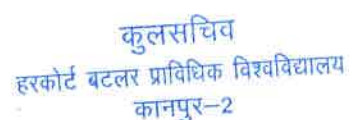 कुलसचिव
हरकोर्ट बटलर प्राविधिक विश्वविद्यालय
कानपुर–2